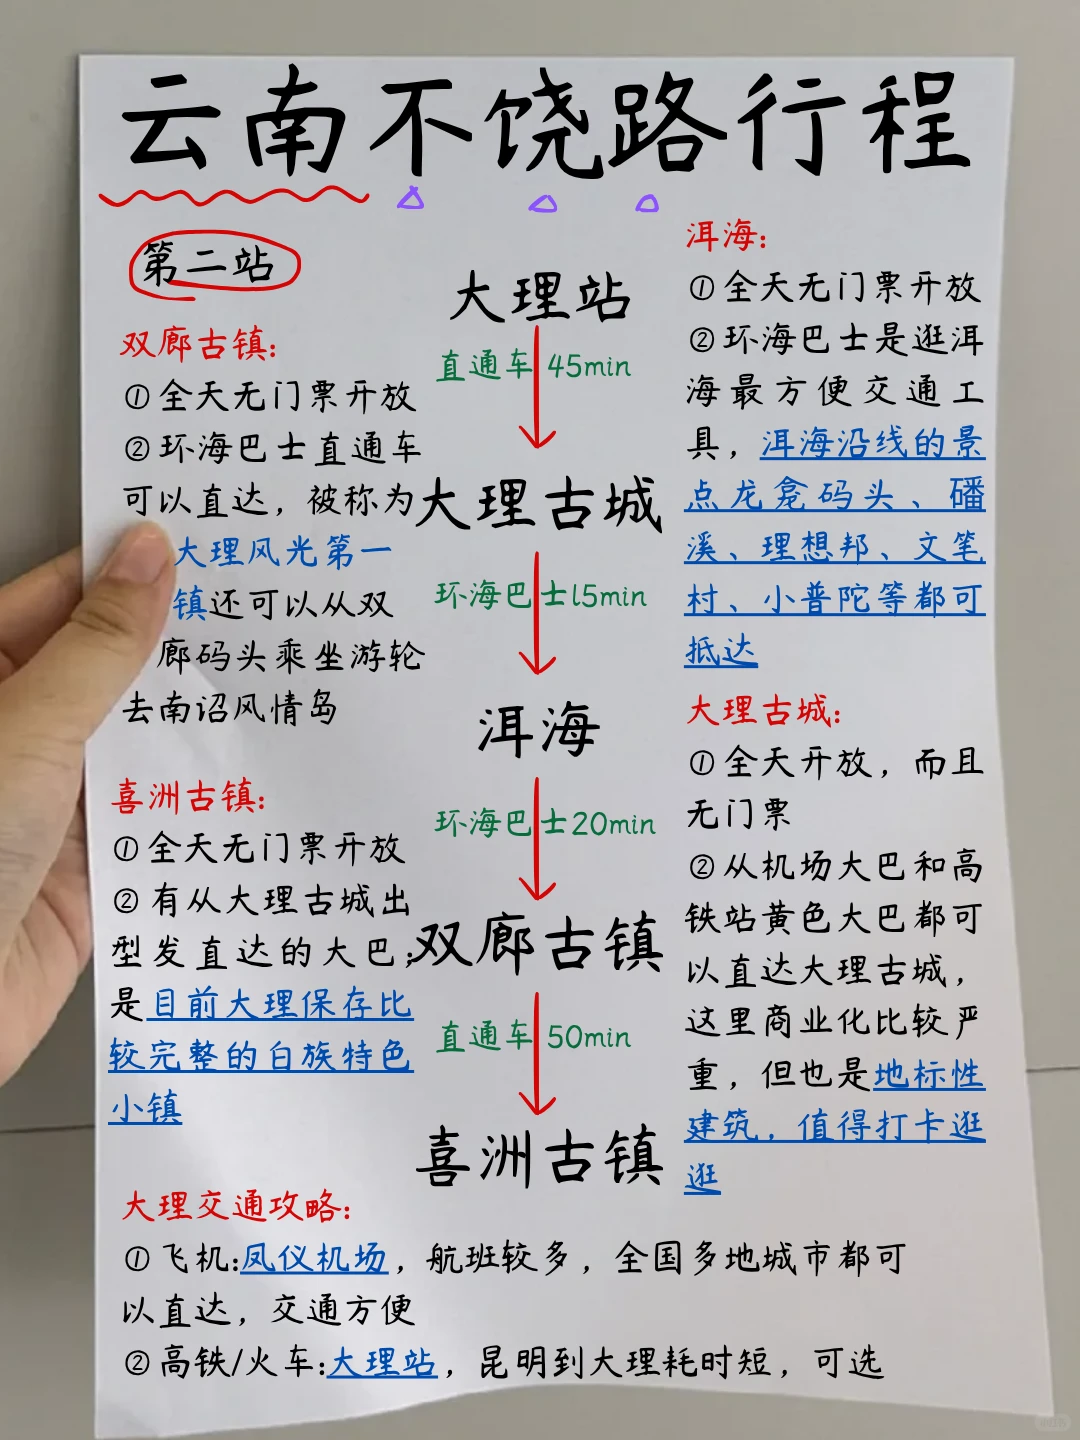 云南不饶路行程
第二站
双廊古镇:
①全天无门票开放
②环海巴士直通车
可以直达，被称为
大理风光第一
镇还可以从双
廊码头乘坐游轮
去南诏风情岛
喜洲古镇:
①全天无门票开放
②有从大理古城出
型发直达的大巴;
是目前大理保存比
较完整的白族特色
小镇
大理站
直通车 45min
大理古城
环海巴士15min
洱海
环海巴士20min
双廊古镇
直通车 50min
喜洲古镇
洱海:
①全天无门票开放
②环海巴士是逛洱
海最方便交通工
具，洱海沿线的景
点龙龛码头、磻
溪、理想邦、文笔
村、小普陀等都可
抵达
大理古城:
①全天开放，而且
无门票
②从机场大巴和高
铁站黄色大巴都可
以直达大理古城，
这里商业化比较严
重，但也是地标性
建筑，值得打卡逛
逛
大理交通攻略:
①飞机:凤仪机场，航班较多，全国多地城市都可
以直达，交通方便
②高铁/火车:大理站，昆明到大理耗时短，可选